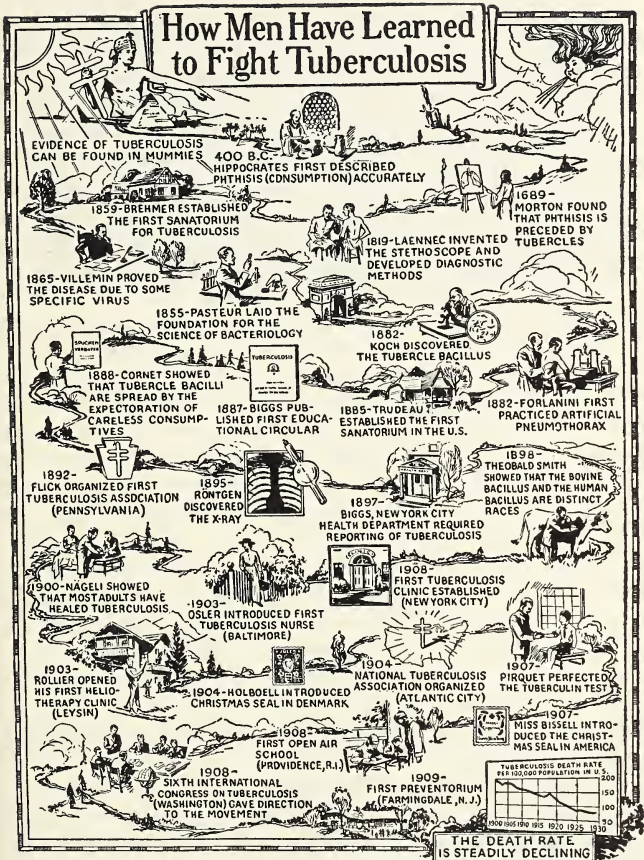 How Men Have Learned
to Fight Tuberculosis
EVIDENCE OF TUBERCULOSIS
CAN BE FOUND IN MUMMIES
400 B.C.-
HIPPOCRATES FIRST DESCRIBED
PHTHISIS (CONSUMPTION) ACCURATELY
1689-
MORTON FOUND
THAT PHTHISIS IS
PRECEDED BY
TUBERCLES
1859-BREHMER ESTABLISHED
THE FIRST SANATORIUM
FOR TUBERCULOSIS
1819-LAENNEC INVENTED
THE STETHOSCOPE AND
DEVELOPED DIAGNOSTIC
METHODS
1865-VILLEMIN PROVED
THE DISEASE DUE TO SOME
SPECIFIC VIRUS
1855-PASTEUR LAID THE
FOUNDATION FOR THE
SCIENCE OF BACTERIOLOGY
1882-
KOCH DISCOVERED
THE TUBERCLE BACILLUS
SPUCKEN
VERBOTEN
1888-CORNET SHOWED
THAT TUBERCLE BACILLI
ARE SPREAD BY THE
EXPECTORATION OF
CARELESS CONSUMP-
TIVES
TUBERCULOSIS
1887-BIGGS PUB-
LISHED FIRST EDUCA-
TIONAL CIRCULAR
1885-TRUDEAU
ESTABLISHED THE FIRST
SANATORIUM IN THE U.S.
1882-FORLANINI FIRST
PRACTICED ARTIFICIAL
PNEUMOTHORAX
1892-
FLICK ORGANIZED FIRST
TUBERCULOSIS ASSOCIATION
(PENNSYLVANIA)
1895-
RÖNTGEN
DISCOVERED
THE X-RAY
1897-
BIGGS, NEW YORK CITY
HEALTH DEPARTMENT REQUIRED
REPORTING OF TUBERCULOSIS
1898-
THEOBALD SMITH
SHOWED THAT THE BOVINE
BACILLUS AND THE HUMAN
BACILLUS ARE DISTINCT
RACES
1900-NÄGELI SHOWED
THAT MOST ADULTS HAVE
HEALED TUBERCULOSIS
1903-
OSLER INTRODUCED FIRST
TUBERCULOSIS NURSE
(BALTIMORE)
1908-
FIRST TUBERCULOSIS
CLINIC ESTABLISHED
(NEW YORK CITY)
1903-
ROLLIER OPENED
HIS FIRST HELIO-
THERAPY CLINIC
(LEYSIN)
1904-HOLBOELL INTRODUCED
CHRISTMAS SEAL IN DENMARK
1904-
NATIONAL TUBERCULOSIS
ASSOCIATION ORGANIZED
(ATLANTIC CITY)
1907-
PIRQUET PERFECTED
THE TUBERCULIN TEST
1907-
MISS BISSELL INTRO-
DUCED THE CHRIST-
MAS SEAL IN AMERICA
1908-
FIRST OPEN AIR
SCHOOL
(PROVIDENCE, R.I.)
1908-
SIXTH INTERNATIONAL
CONGRESS ON TUBERCULOSIS
(WASHINGTON) GAVE DIRECTION
TO THE MOVEMENT
1909-
FIRST PREVENTORIUM
(FARMINGDALE, N.J.)
TUBERCULOSIS DEATH RATE
PER 100,000 POPULATION IN U.S.
200
150
100
50
1900 1905 1910 1915 1920 1925 1930
THE DEATH RATE
IS STEADILY DECLINING